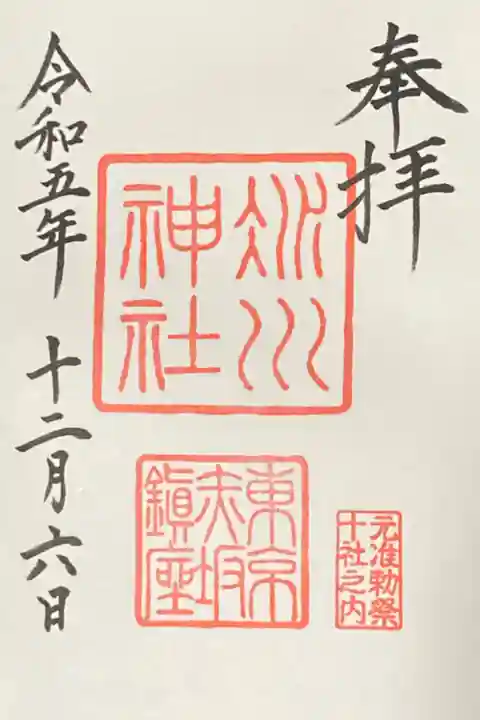 奉拝
氷川
神社
東京
赤坂
鎭座
元准勅祭
十社之内
令和五年 十二月六日